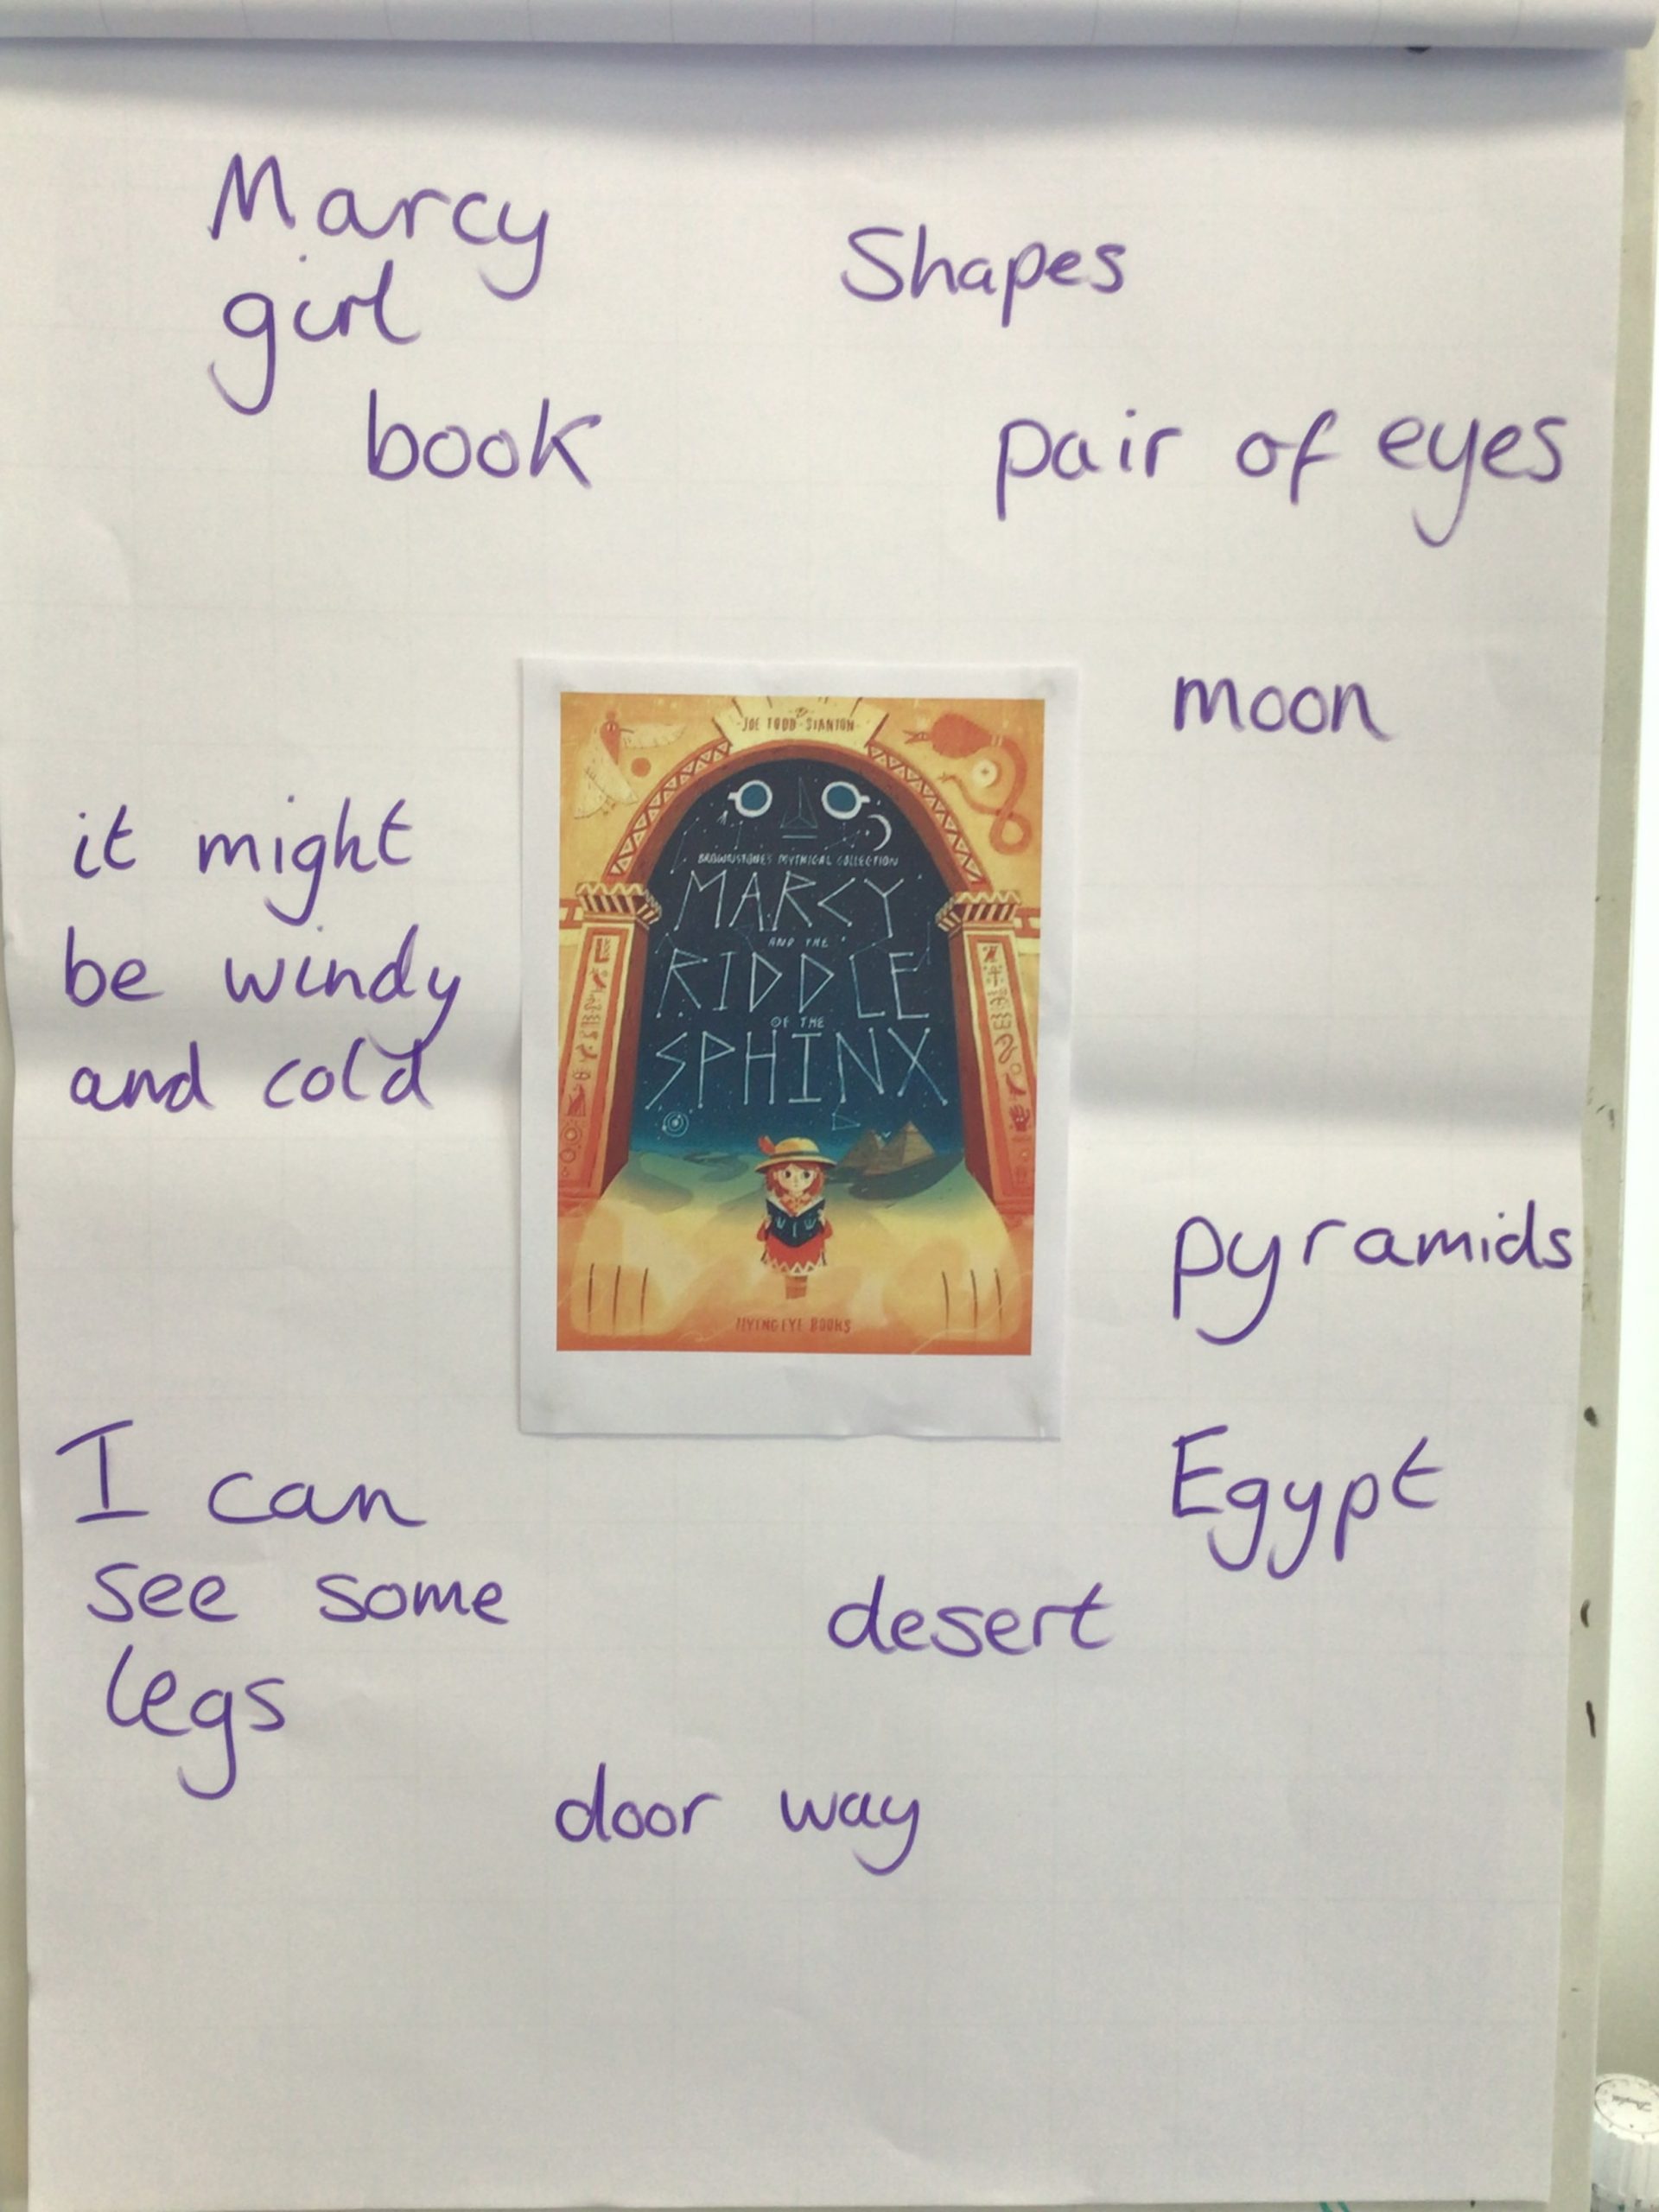 Marcy
girl
book
Shapes
pair of eyes
moon
it might
be windy
and cold
JOE TODD-STANTON
BROWNSTONE'S MYTHICAL COLLECTION
MARCY
AND THE
RIDDLE
OF THE
SPHINX
FLYING EYE BOOKS
pyramids
Egypt
I can
see some
legs
desert
door way